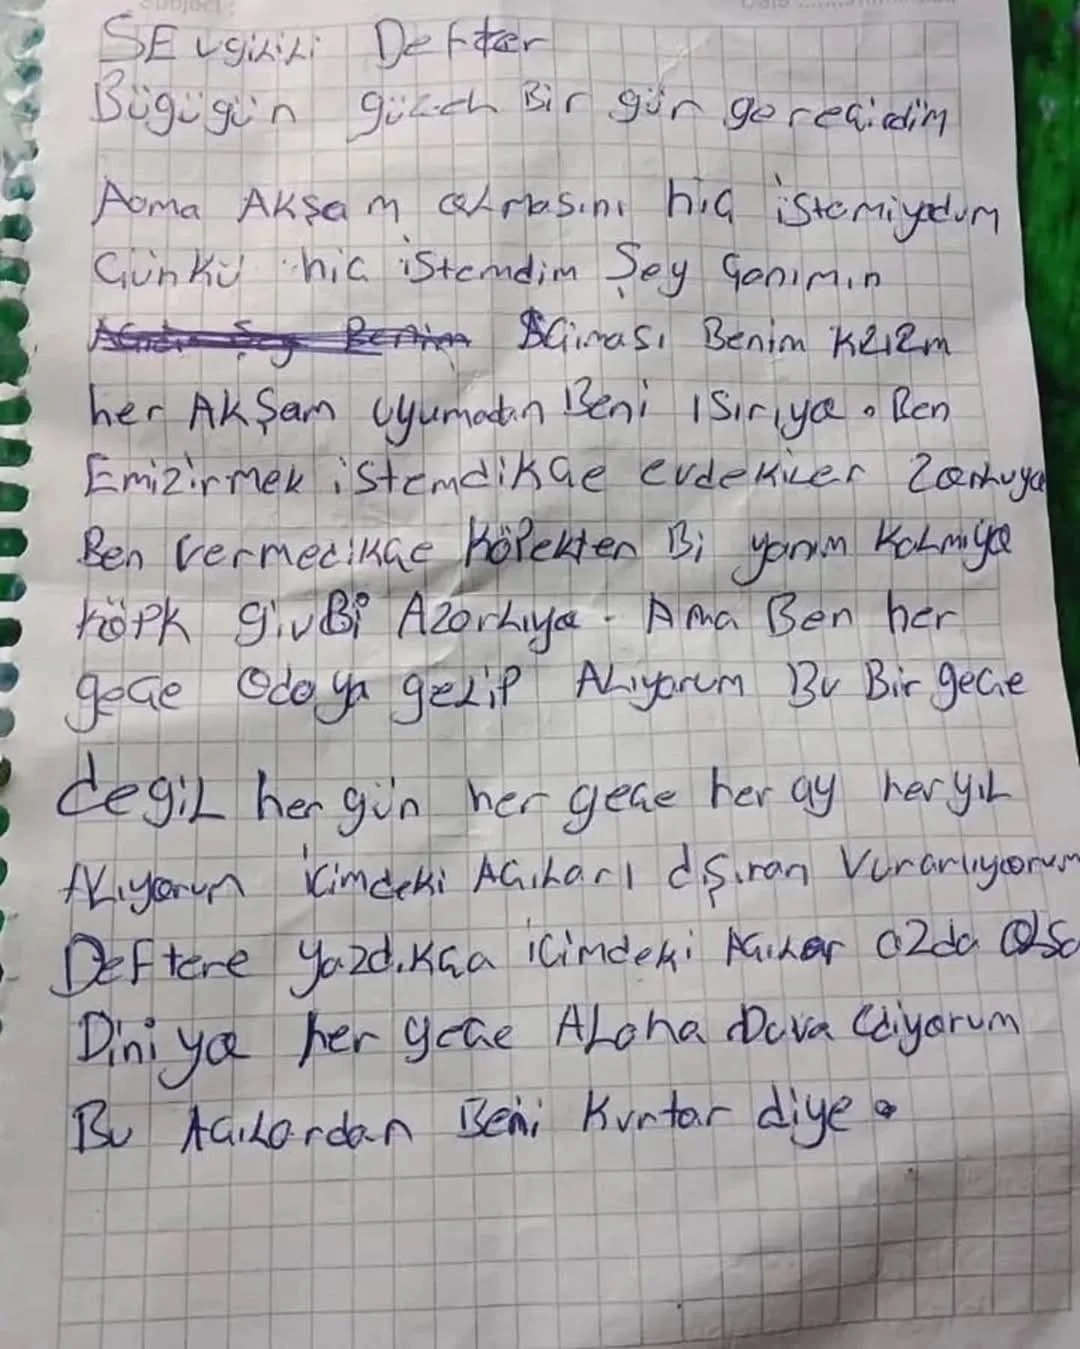 SEvgiLiLi Defter
Bügügün güzeh Bir gün gereçirdim
Aoma AKşam oLmasını hiç istemiyodum
Günkü hic istemdim Şey Ganımın
AGıması Benim Kzızm
her AKŞam Uyumadan Beni ısırıya. Ben
Emizirmek istemdikGe evdekiLer Zorluya
Ben vermedikGe Köpekten Bi yanım KaLmiya
Köpk givBi AzorLıya. Ama Ben her
geGe Odaya geLip ALıyorum Bu Bir geGe
degiL her gün her geGe her ay heryıL
ALıyorum iGimdeki AGıLarı dışıran Vurarlıyorum
Deftere yazdıkGa iGimdeki AGıLar azda OLsa
Diniya her geGe ALoha Duva Ediyorum
Bu AGıLordan Beni Kurtar diye.